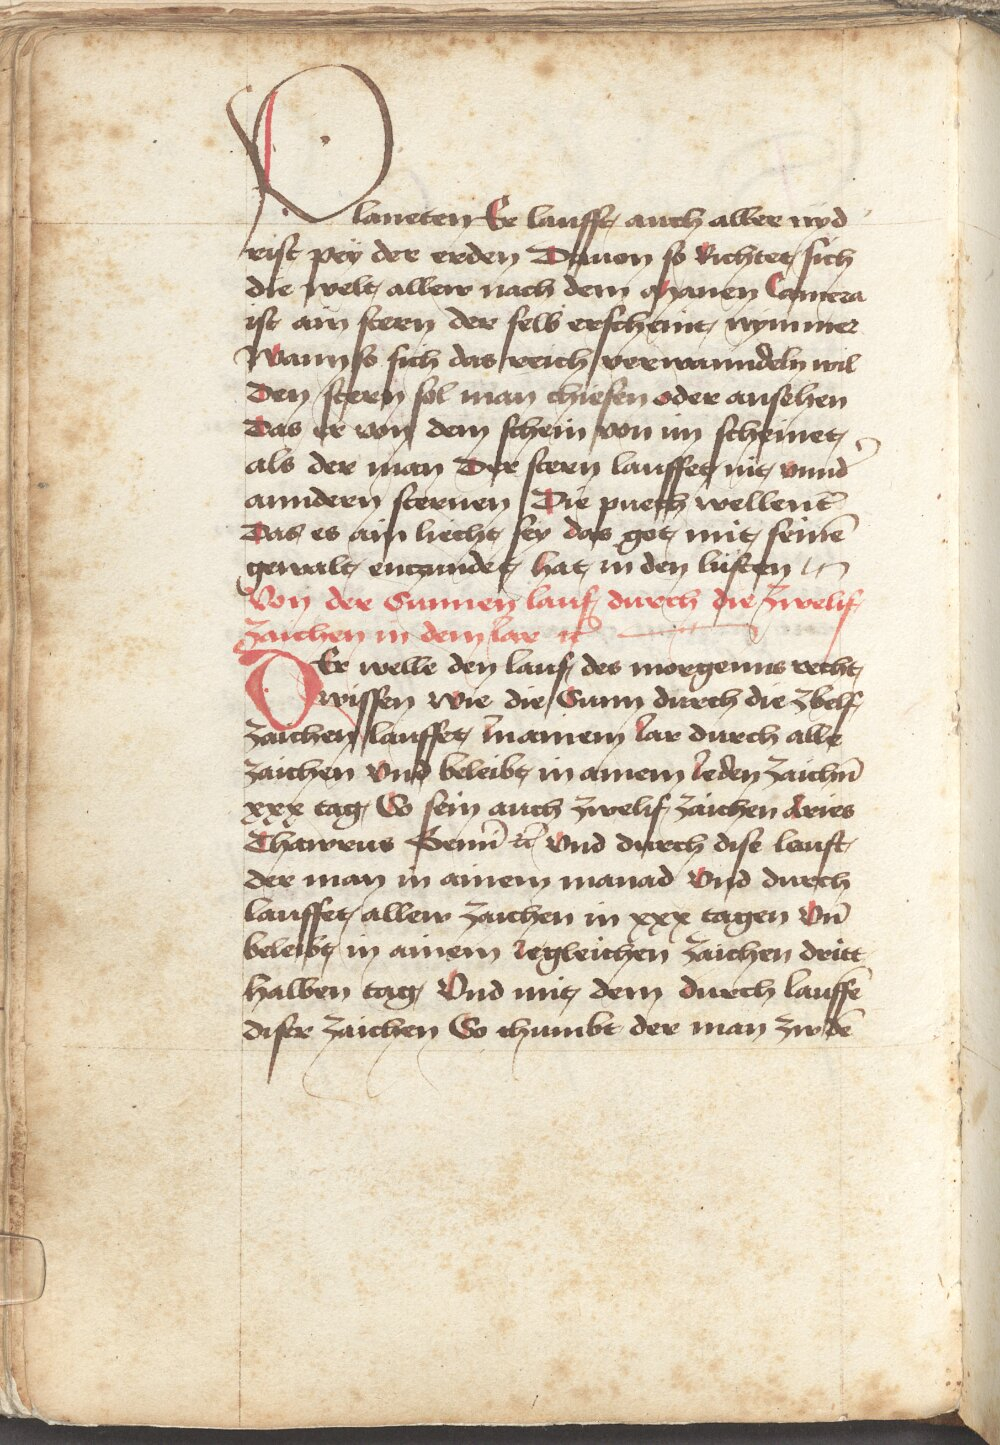 Planeten Er laufft auch aller nyd
rist pey der erden Dauon so Richtet sich
die welt allew nach dem Manen Cometa
ist ain stern der selb erscheint nymmer
Wann so sich das reich verwanndeln wil
Den stern sol man chiesen oder ansehen
Das er von dem schein von im scheinet
als der man Der stern lauffet nit vnnd̄
anndern sternen Die puech wellent̄
Das es ain liecht sey das got mit seinē
gewalt enczundet hat in den lüften
Von der Sunnen lauf durch die Zwelif
Zaichen in dem Iar ꝛc
DEr welle den lauf des morgenns recht
wissen wie die Sunn durch die Zbelf
Zaichen lauffet In ainem Iar durch alle
Zaichen Vnd beleibt in ainem Ieden Zaichn̄
xxx tag So sein auch Zwelif Zaichen Aries
Thawrus Gemī ꝛc̄ Vnd durch dise lauft
der man in ainem manad Vnd durch
lauffet allew Zaichen in xxx tagen Vn̄
beleibt in ainem Iegleichen Zaichen dritt
halben tag Vnd mit dem durch lauffē
diser Zaichen So chumbt der man Zw dē